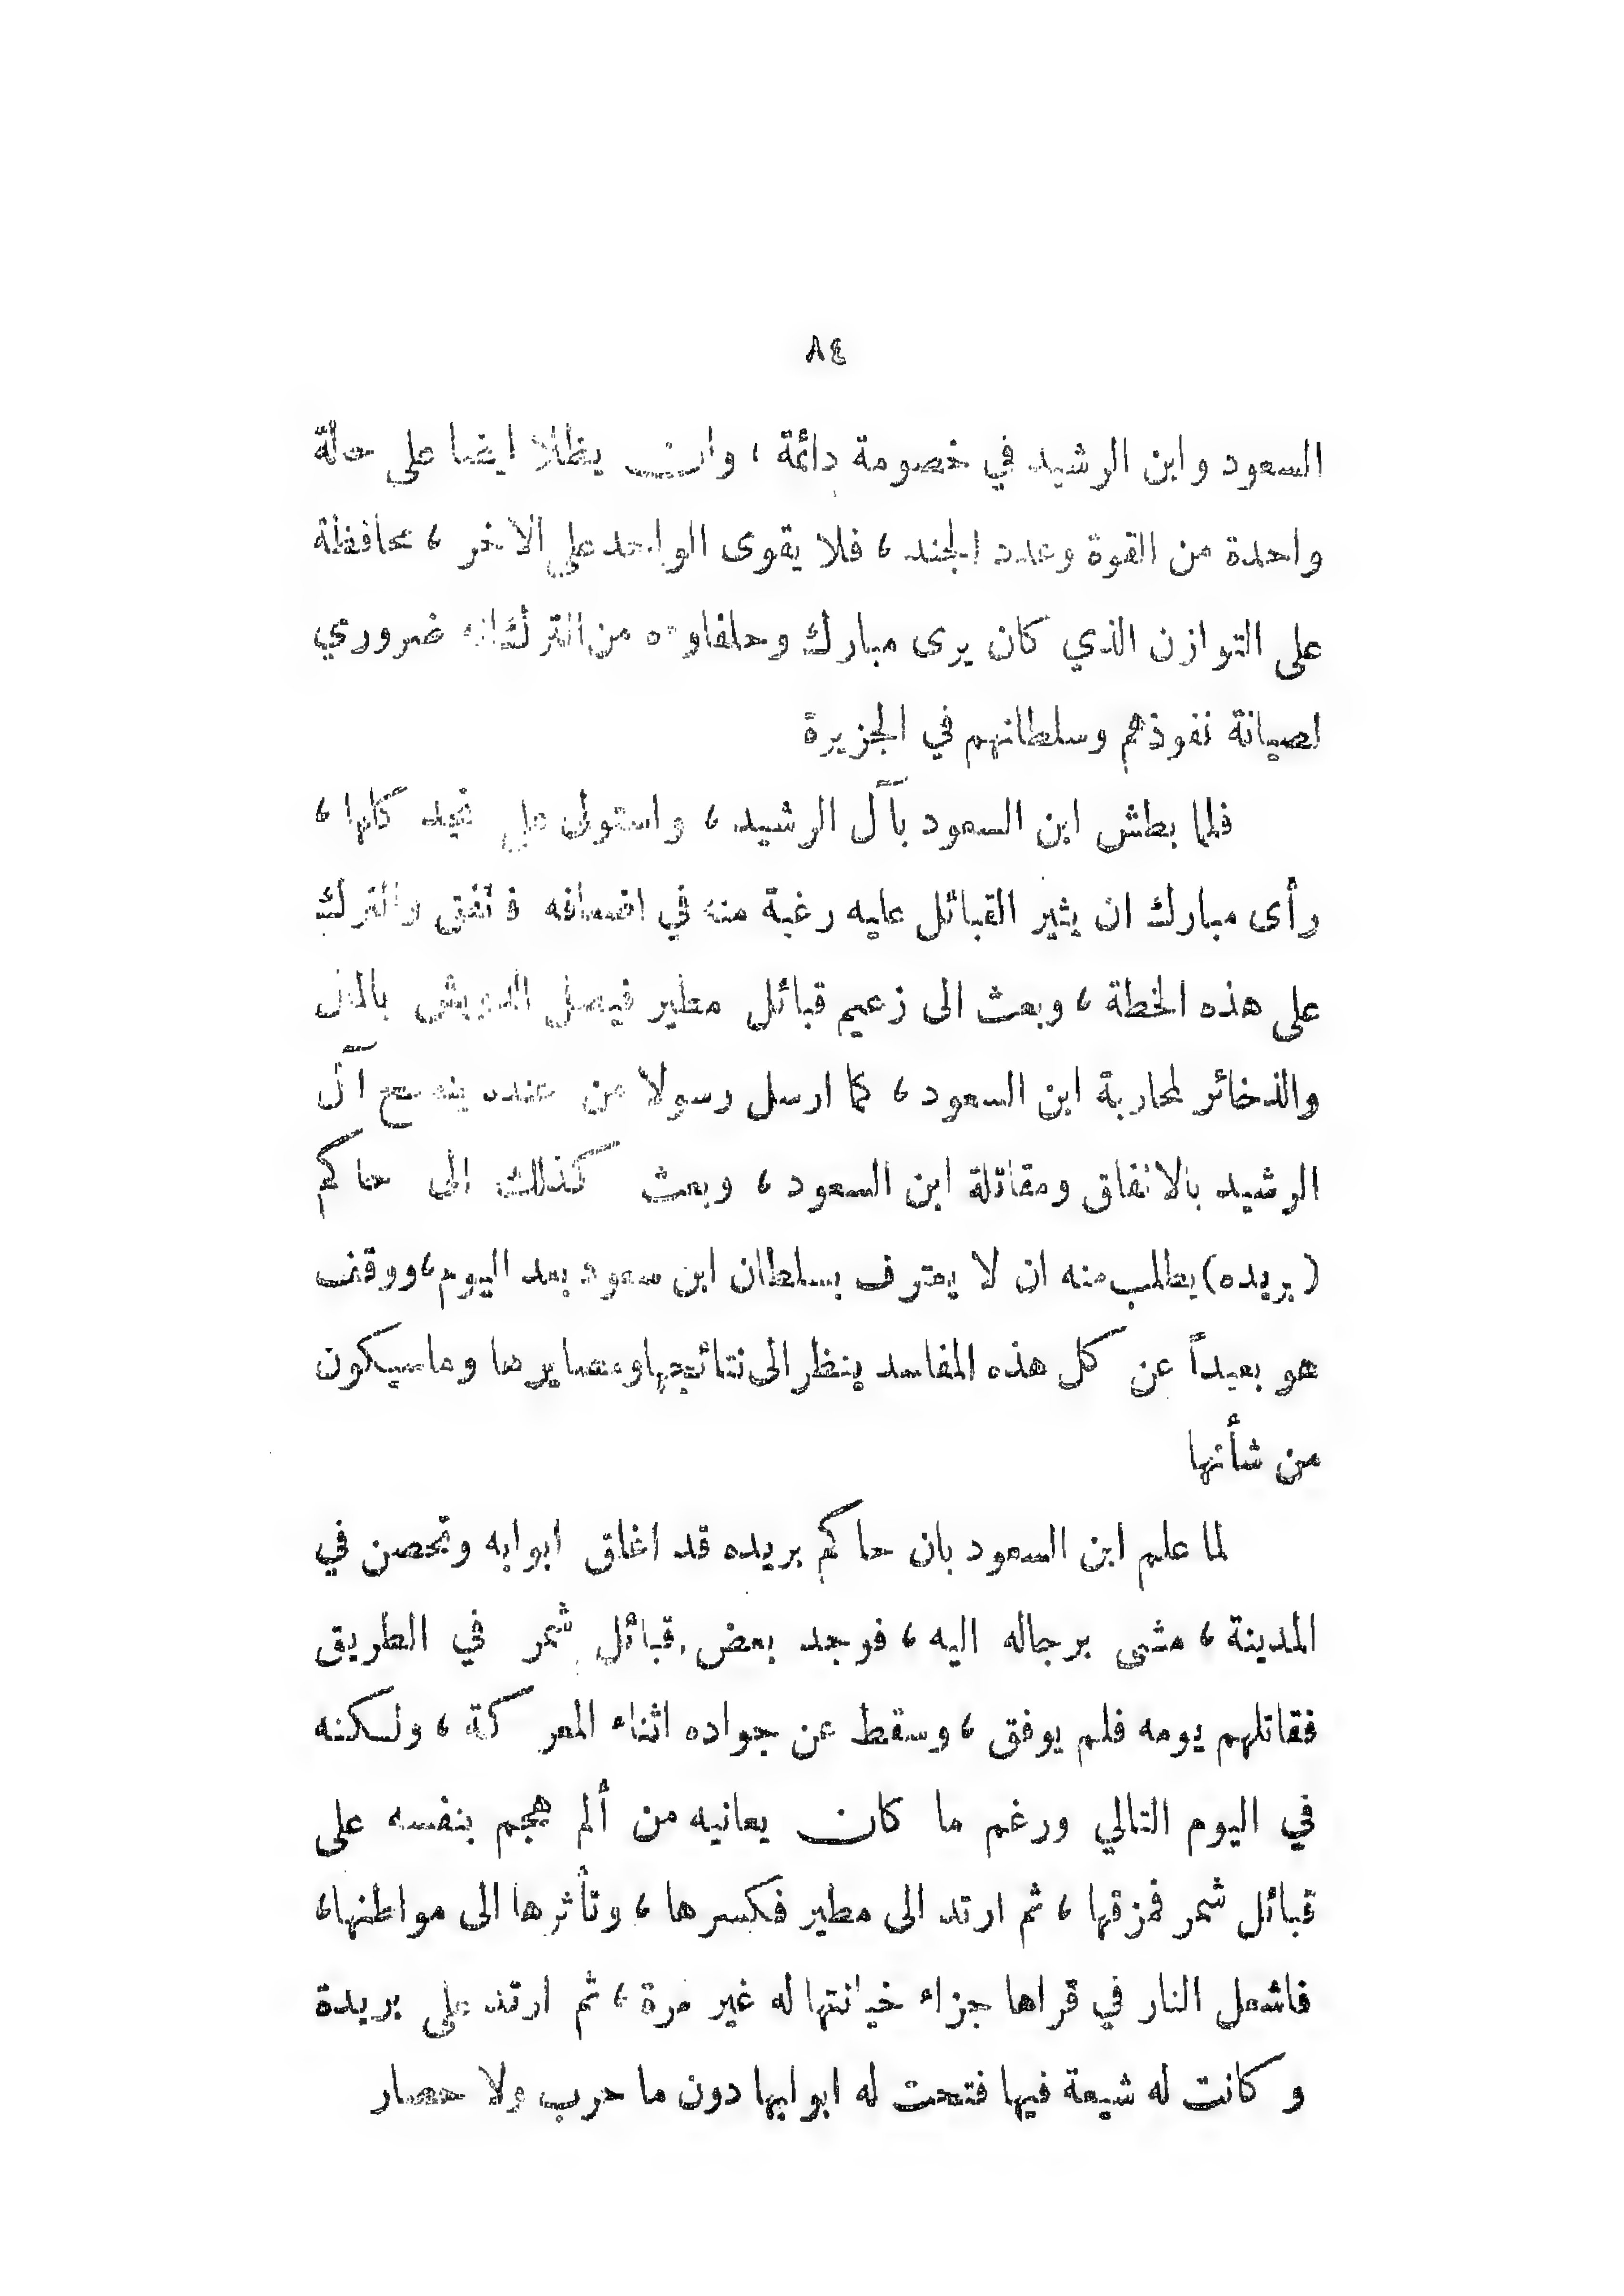 ٨٤
السعود وابن الرشيد في خصومة دائمة ، وان يظلا ايضا على حالة
واحدة من القوة وعدد الجند ، فلا يقوى الواحد على الاخر ، محافظة
على التوازن الذي كان يرى مبارك وحلفاوءه من الترك انه ضروري
لصيانة نفوذهم وسلطانهم في الجزيرة
فلما بطش ابن السعود بآل الرشيد ، واستولى على نجد كلها ،
رأى مبارك ان يثير القبائل عليه رغبة منه في اضعافه فاتفق والترك
على هذه الخطة ، وبعث الى زعيم قبائل مطير فيصل الدويش بالمال
والذخائر لمحاربة ابن السعود ، كما ارسل رسولا من عنده ينصح آل
الرشيد بالاتفاق ومقاتلة ابن السعود ، وبعث كذلك الى حاكم
(بريده) يطلب منه ان لا يعترف بسلطان ابن سعود بعد اليوم ، ووقف
هو بعيداً عن كل هذه المفاسد ينظر الى نتائجها ومصايرها وما سيكون
من شأنها
لما علم ابن السعود بان حاكم بريده قد اغلق ابوابه وتحصن في
المدينة ، مشى برجاله اليه ، فوجد بعض قبائل شمر في الطريق
فقاتلهم يومه فلم يوفق ، وسقط عن جواده اثناء المعركة ، ولكنه
في اليوم التالي ورغم ما كان يعانيه من ألم هجم بنفسه على
قبائل شمر فمزقها ، ثم ارتد الى مطير فكسرها ، وتأثرها الى مواطنها ،
فاشعل النار في قراها جزاء خيانتها له غير مرة ، ثم ارتد على بريدة
وكانت له شيعة فيها فتحت له ابوابها دون ما حرب ولا حصار